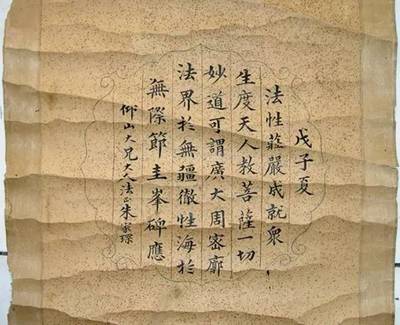 戊子夏
法性莊嚴成就衆
生度天人教菩薩一切
妙道可謂廣大周密廓
法界於無疆徹性海於
無際節圭峯碑應
仰山大兄大人法正朱家琛